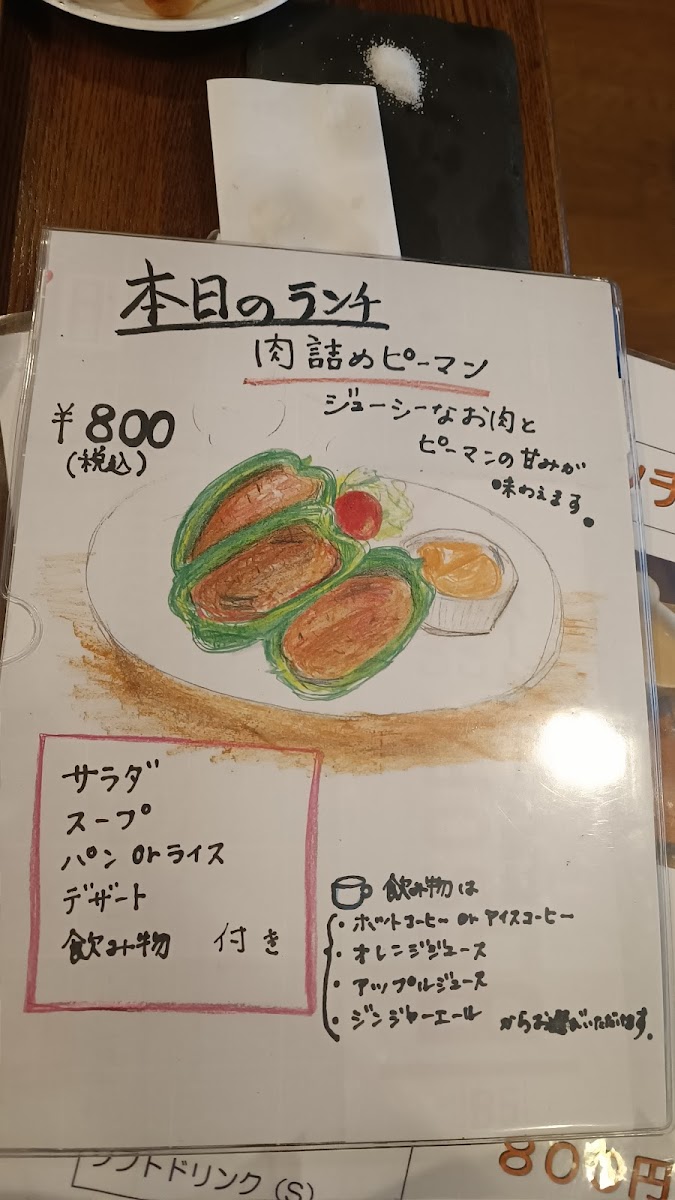 本日のランチ
肉詰めピーマン
¥800
(税込)
ジューシーなお肉と
ピーマンの甘みが
味わえます。
ンチ
サラダ
スープ
パン or ライス
デザート
飲み物 付き
飲み物は
・ホットコーヒー or アイスコーヒー
・オレンジジュース
・アップルジュース
・ジンジャーエール からお選びいただけます。
ソフトドリンク (S)
800円